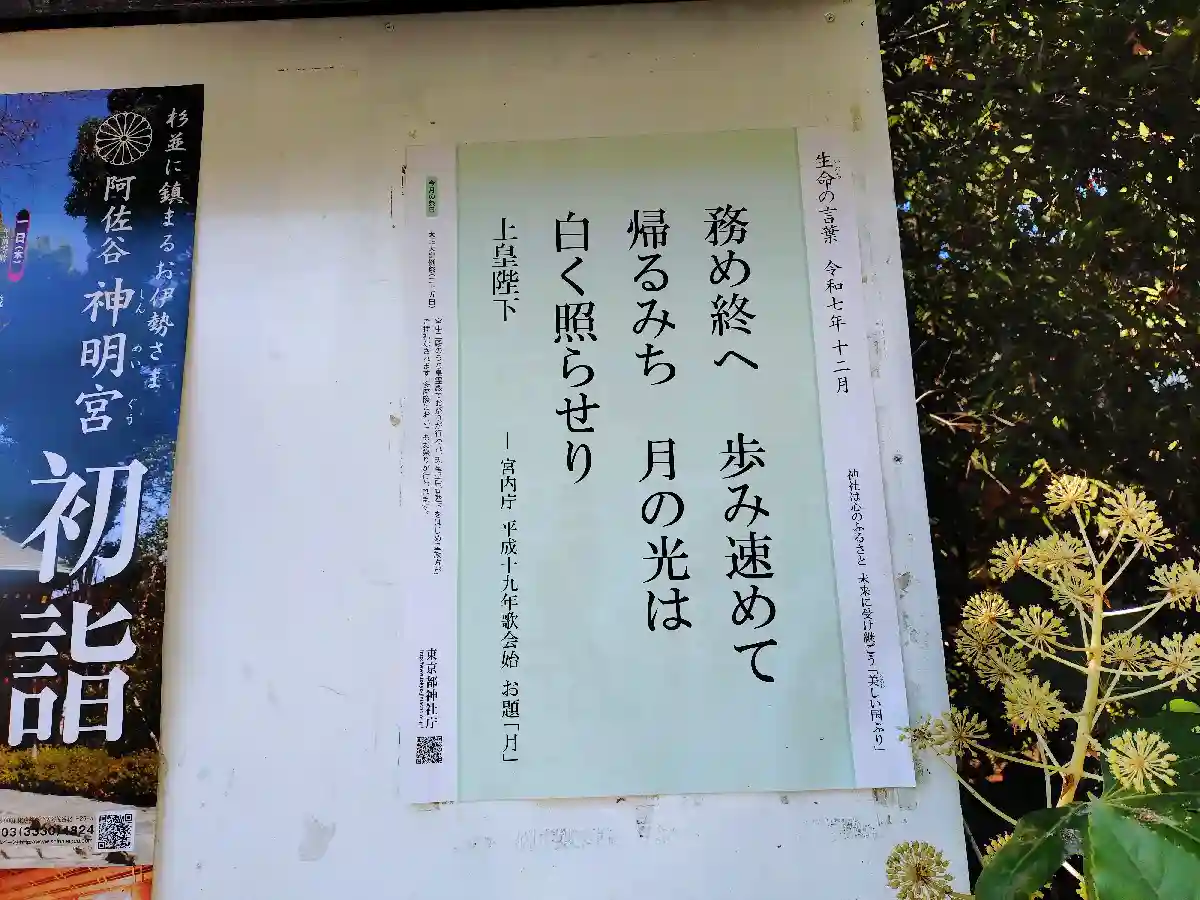 生命の言葉 令和七年 十二月
神社は心のふるさと 未来に受け継ごう「美しい国ぶり」
務め終へ 歩み速めて
帰るみち 月の光は
白く照らせり
上皇陛下 ―宮内庁 平成十九年歌会始 お題「月」
東京都神社庁
杉並に鎮まるお伊勢さま
阿佐谷 神明宮
しん めい ぐう
初詣
一日(木)
03(3330)4824